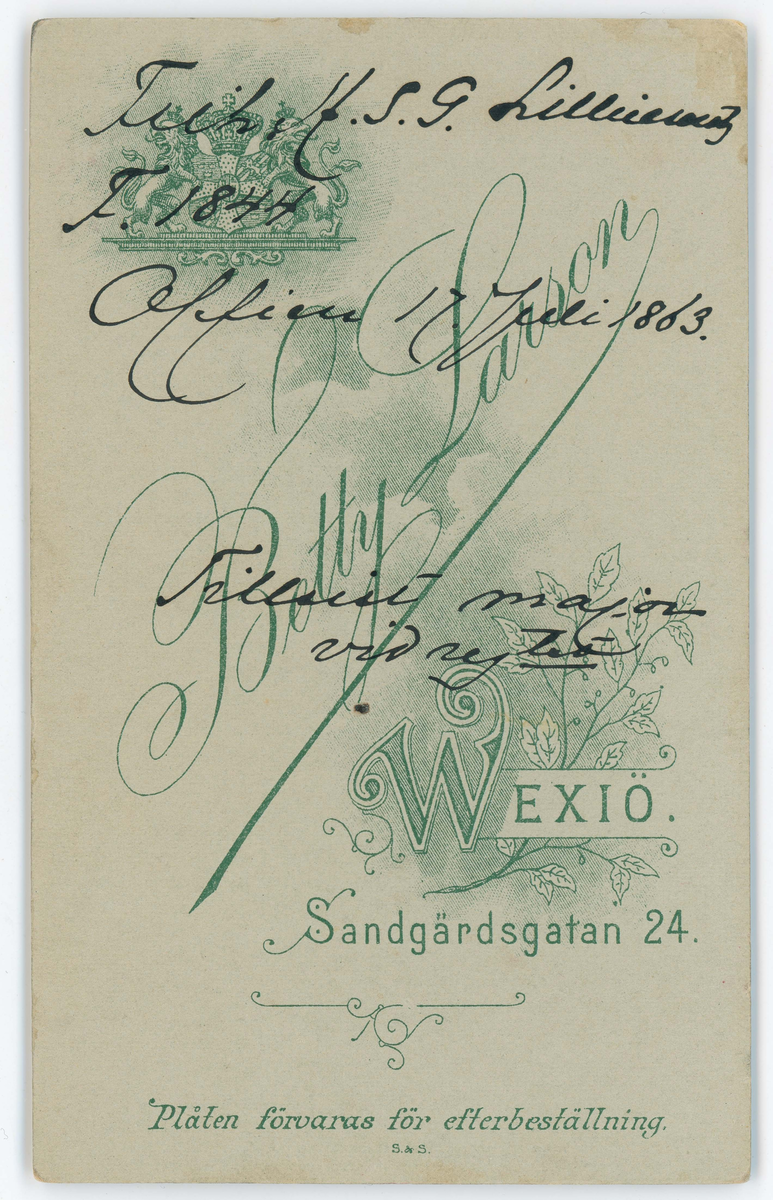 Frih. H. S. G. Lilliecreutz
F. 1844
Officer 17. Juli 1863.
Betty Larson
Tillhört major
vid regtet
WEXIÖ.
Sandgärdsgatan 24.
Plåten förvaras för efterbeställning.
S. & S.